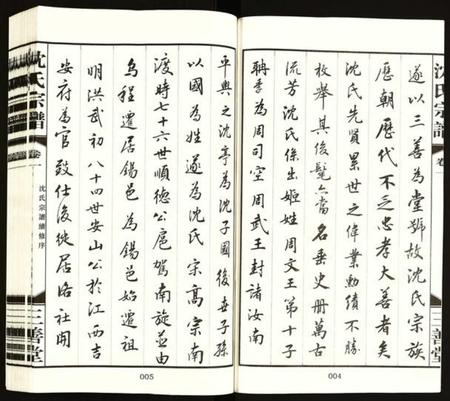 沈氏宗譜
卷一
三善堂
遂以三善為堂號故沈氏宗族
歷朝歷代不乏忠孝大善者矣
沈氏先賢累世之偉業勳績不勝
枚舉其後髦六畜名垂史冊萬古
流芳沈氏係出姬姓周文王第十子
聃季為周司空周武王封諸汝南
004
平輿之沈亭為沈子國後世子孫
以國為姓遂為沈氏宋高宗南
渡時七十六世順德公扈駕南旋並由
烏程遷居錫邑為錫邑始遷祖
明洪武初八十四世安山公於江西吉
安府為官致仕後徙居洛社開
005
沈氏宗譜
卷一
沈氏宗譜續修序
三善堂